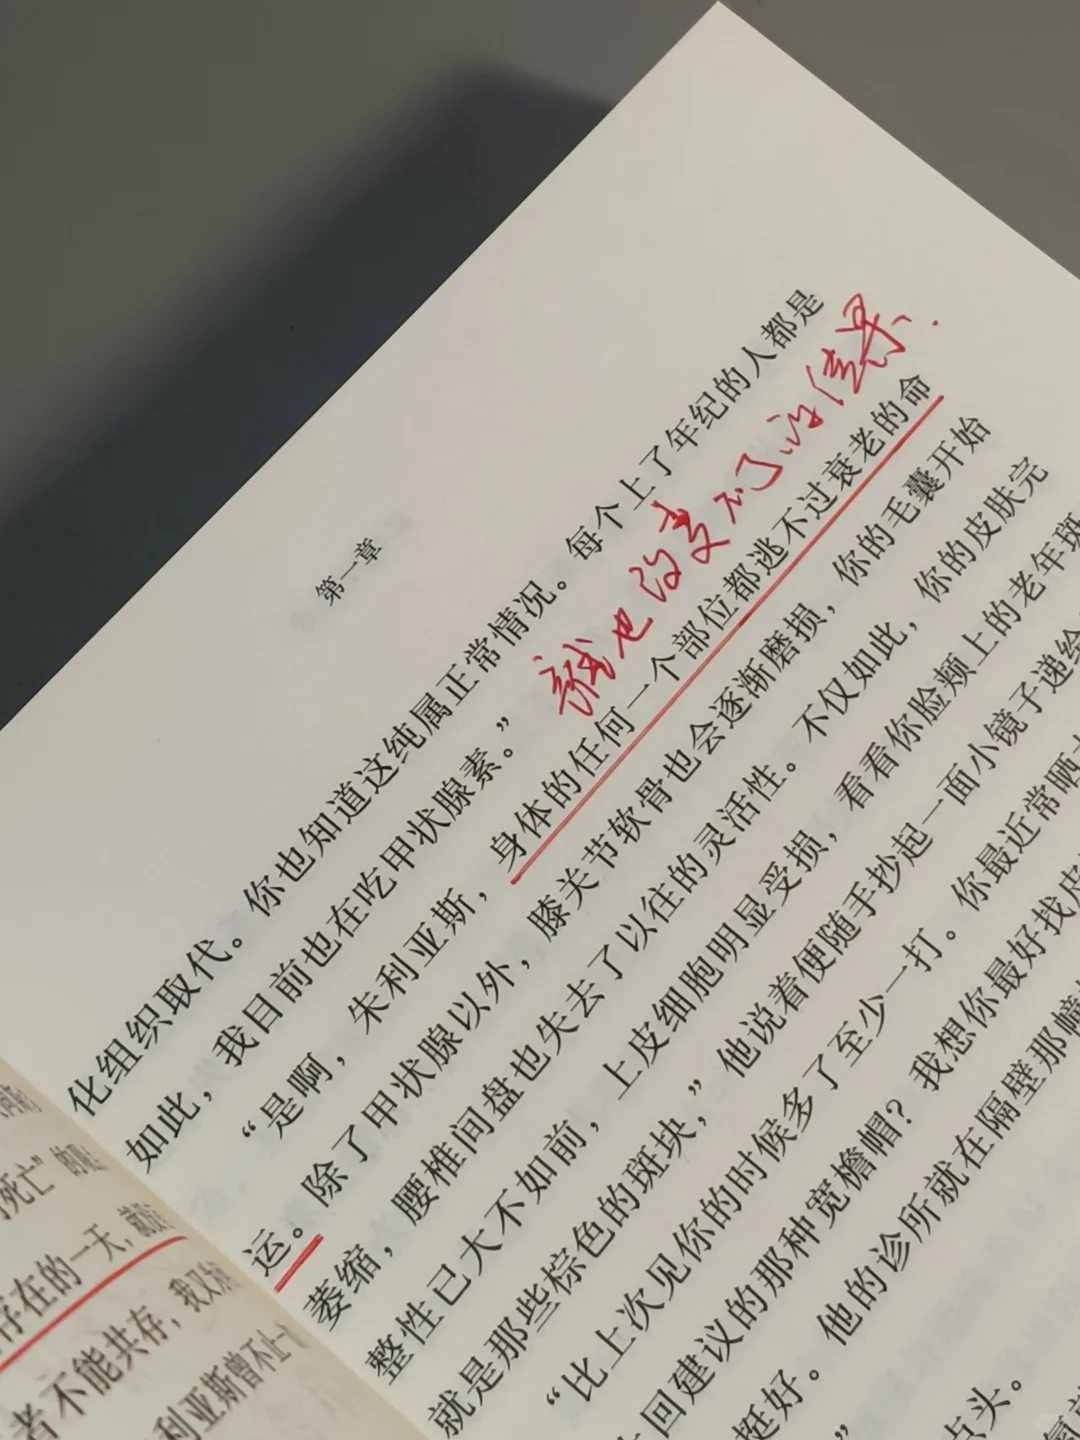 第一章
化组织取代。你也知道这纯属正常情况。每个上了年纪的人都是
如此，我目前也在吃甲状腺素。”
谁也改变不了的结果.
“是啊，朱利亚斯，身体的任何一个部位都逃不过衰老的命
运。除了甲状腺以外，膝关节软骨也会逐渐磨损，你的毛囊开始
萎缩，腰椎间盘也失去了以往的灵活性。不仅如此，你的皮肤完
整性已大不如前，上皮细胞明显受损，看看你脸颊上的老年斑
就是那些棕色的斑块，”他说着便随手抄起一面小镜子递给
“比上次见你的时候多了至少一打。你最近常晒
上回建议的那种宽檐帽？我想你最好找皮
挺好。他的诊所就在隔壁那幢
”
点头。
死亡”的
存在的一天，就
者不能共存，我又
利亚斯曾不止